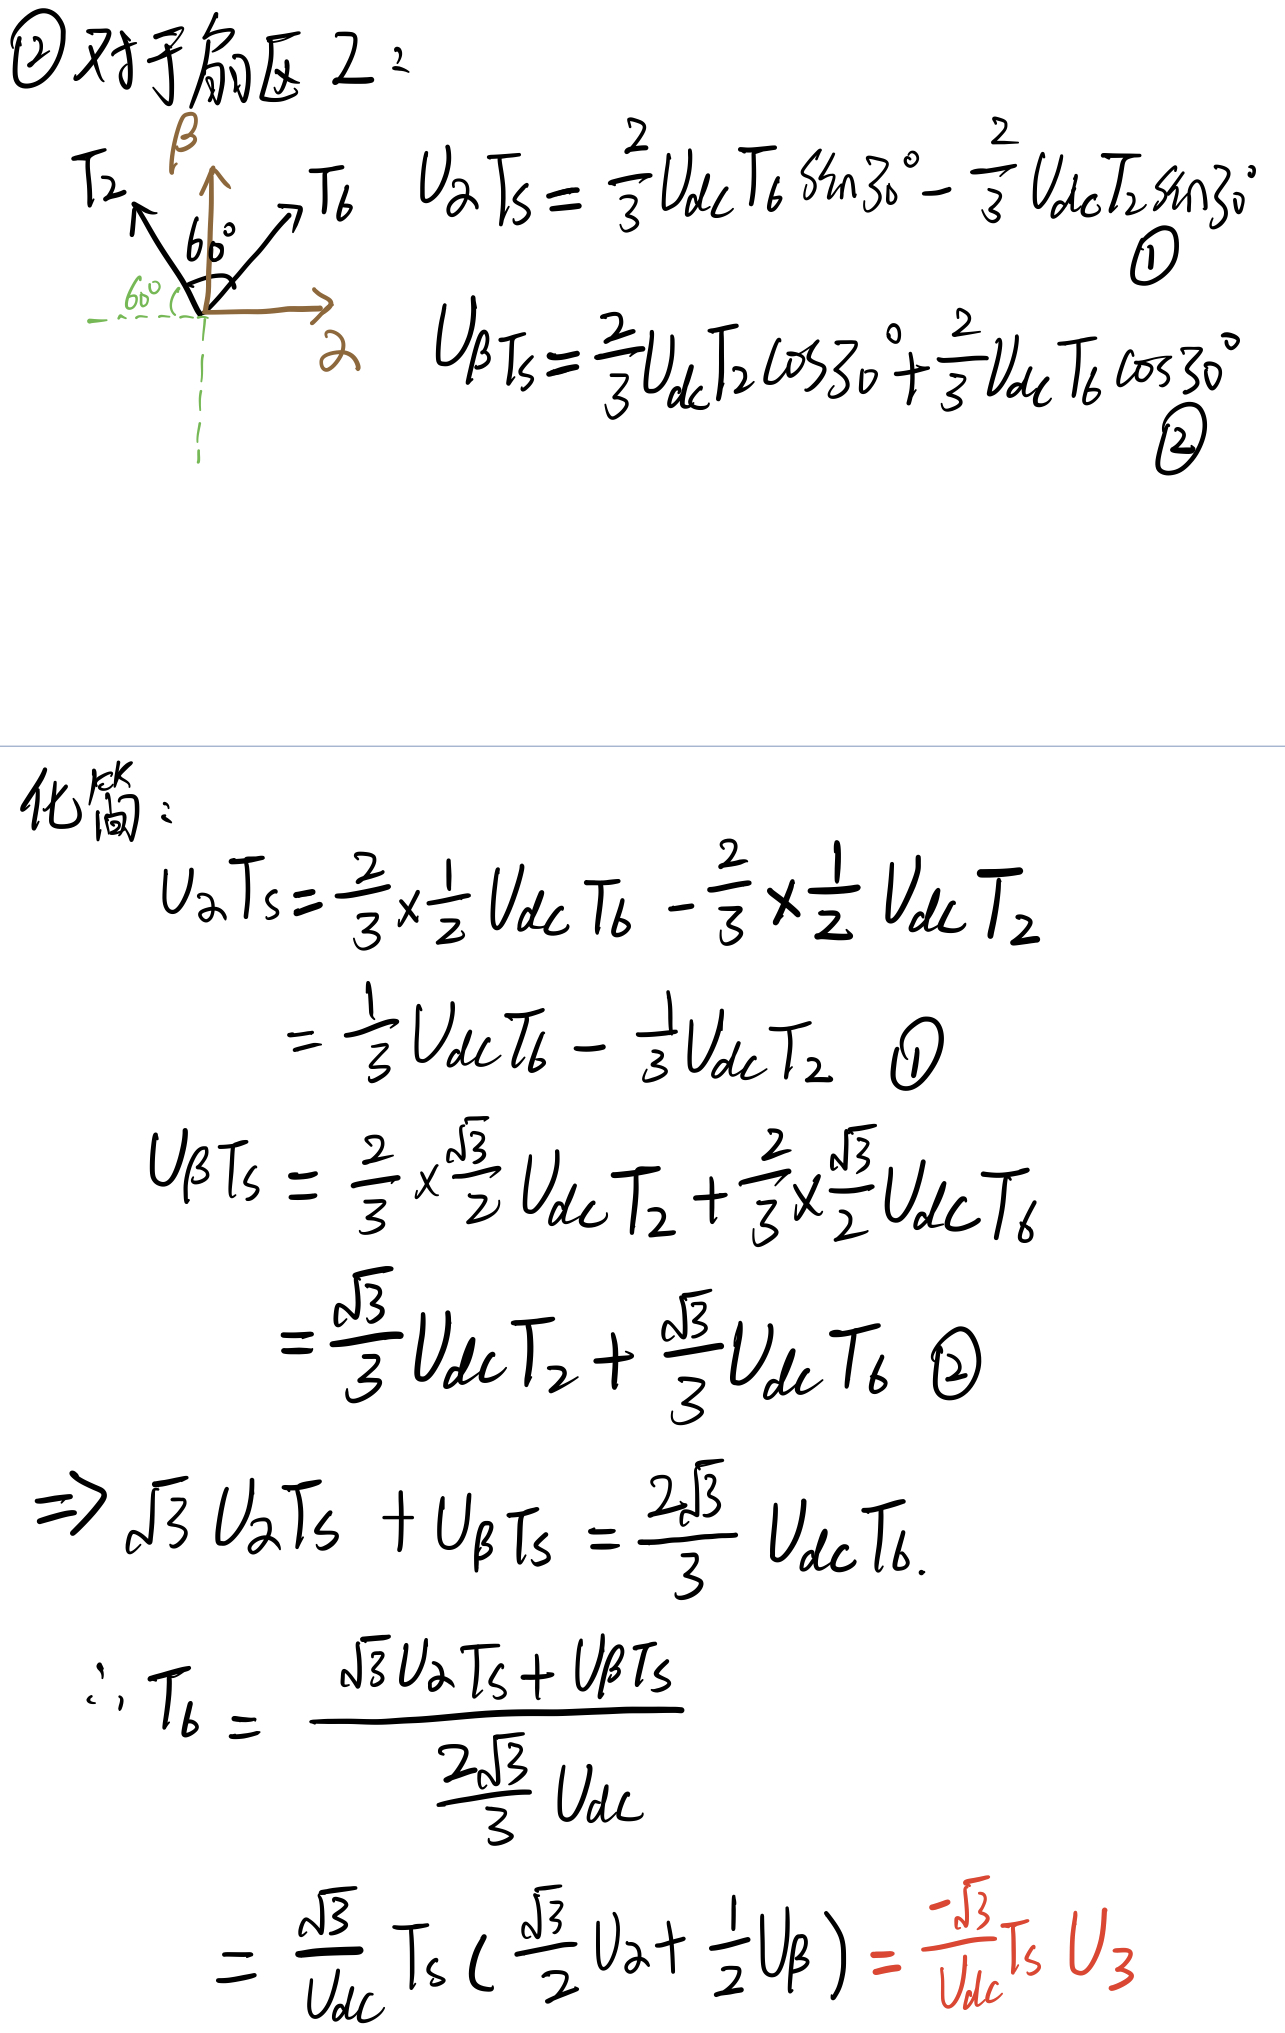 ② 对于扇区 2:
β
T₂ T₆
60°
60°
α
UαTs = 2/3 Udc T₆ sin30° - 2/3 Udc T₂ sin30° ①
UβTs = 2/3 Udc T₂ cos30° + 2/3 Udc T₆ cos30° ②
化简:
UαTs = 2/3 × 1/2 Udc T₆ - 2/3 × 1/2 Udc T₂
= 1/3 Udc T₆ - 1/3 Udc T₂ ①
UβTs = 2/3 × √3/2 Udc T₂ + 2/3 × √3/2 Udc T₆
= √3/3 Udc T₂ + √3/3 Udc T₆ ②
⇒ √3 UαTs + UβTs = 2√3/3 Udc T₆.
∴ T₆ = (√3 UαTs + UβTs) / (2√3/3 Udc)
= √3/Udc Ts (√3/2 Uα + 1/2 Uβ) = -√3/Udc Ts U₃